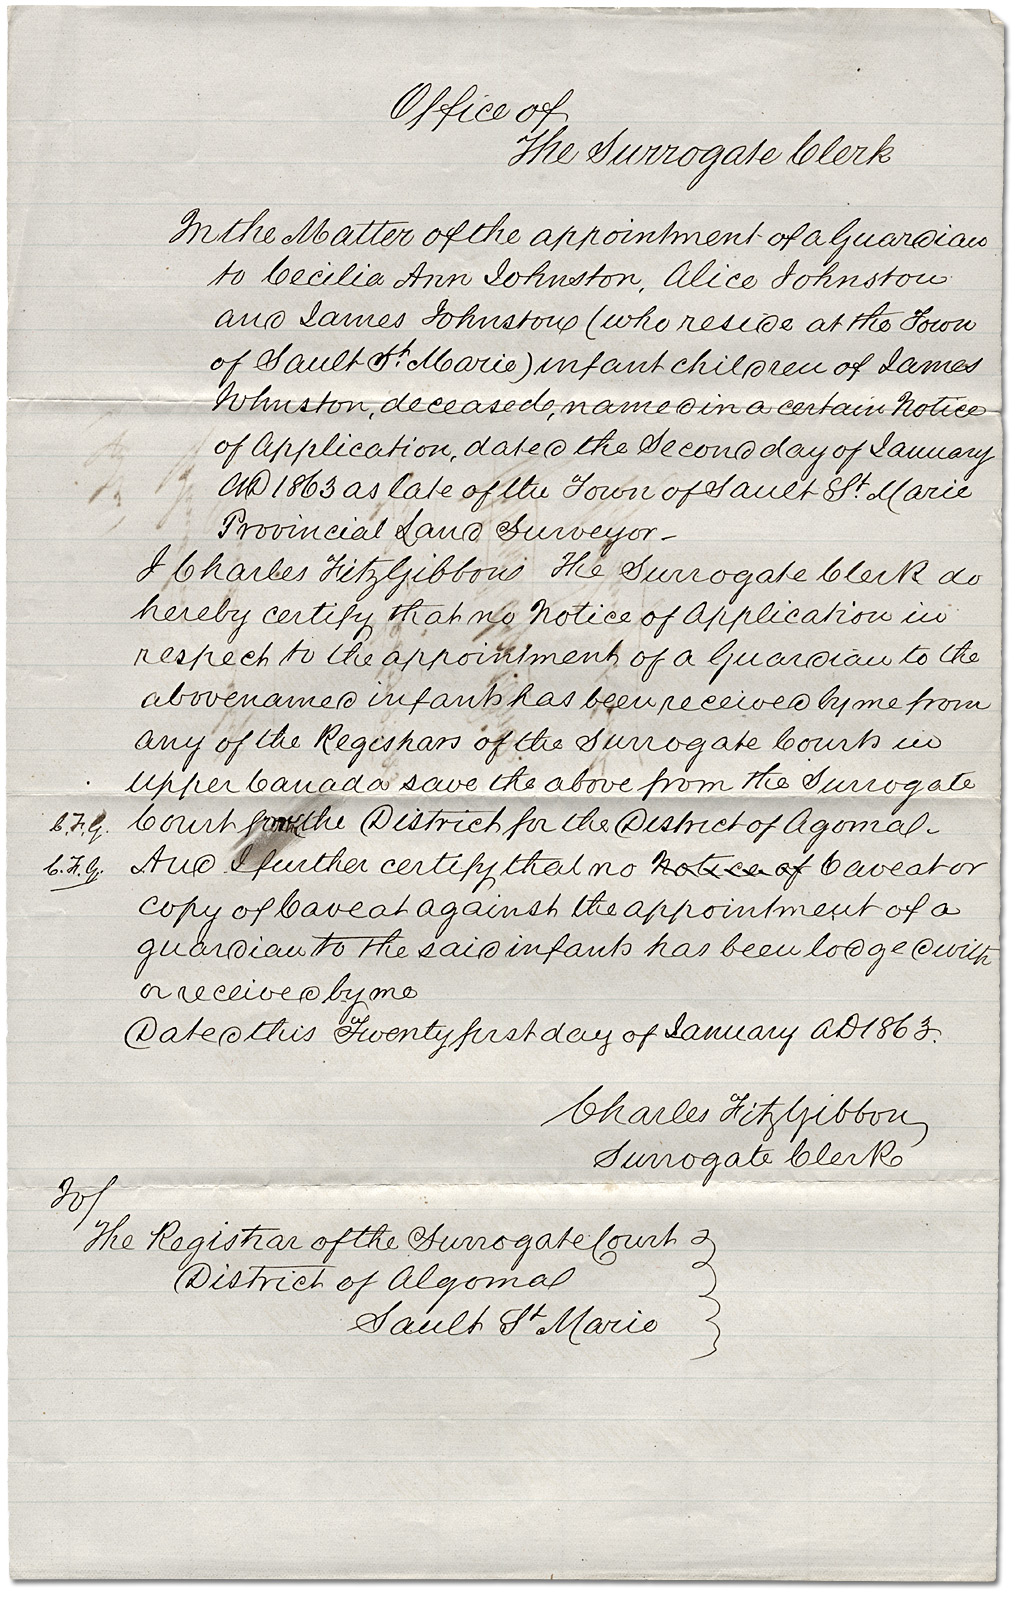 Office of
The Surrogate Clerk
In the Matter of the appointment of a Guardian
to Cecilia Ann Johnston, Alice Johnston
and James Johnston (who reside at the Town
of Sault St. Marie) infant children of James
Johnston, deceased, named in a certain Notice
of Application, dated the Second day of January
AD 1863 as late of the Town of Sault St Marie
Provincial Land Surveyor -
I Charles FitzGibbon The Surrogate Clerk do
hereby certify that no Notice of Application in
respect to the appointment of a Guardian to the
abovenamed infants has been received by me from
any of the Registrars of the Surrogate Courts in
Upper Canada save the above from the Surrogate
C.F.G. Court the District for the District of Agomal -
C.F.G. And I further certify that no Notice of Caveat or
copy of Caveat against the appointment of a
guardian to the said infants has been lodged with
or received by me
Dated this Twenty first day of January AD 1863.
Charles FitzGibbon
Surrogate Clerk
To/
The Registrar of the Surrogate Court
District of Algomal
Sault St Marie